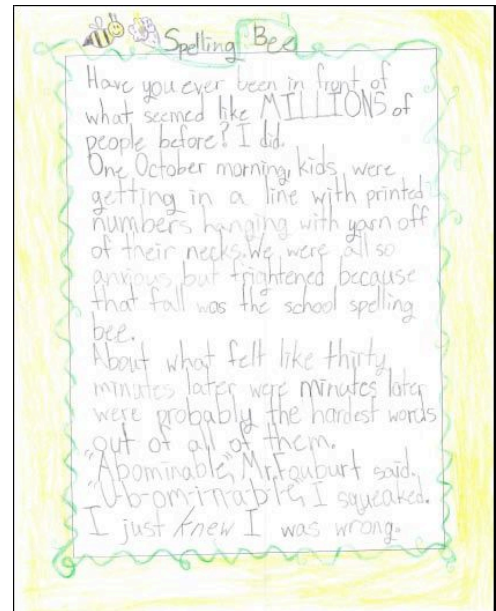 Spelling Bee
Have you ever been in front of
what seemed like MILLIONS of
people before? I did.
One October morning, kids were
getting in a line with printed
numbers hanging with yarn off
of their necks. We were all so
anxious but frightened because
that fall was the school spelling
bee.
About what felt like thirty
minutes later were minutes later
were probably the hardest words
out of all of them.
"Abominable," Mr. Fouburt said.
"O-b-om-i-n-a-b-l-e," I squeaked.
I just knew I was wrong.